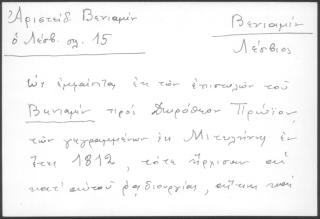 Ἀριστείδ Βενιαμὶν
ὁ Λέσβ. σλ. 15
Βενιαμὶν
Λέσβιος
Ὡς ἐμφαίνεται ἐκ τῶν ἐπιστολῶν τοῦ
Βενιαμὶν πρὸς Δωρόθεον Πρώϊον,
τῶν γεγραμμένων ἐκ Μιτυλήνης ἐν
ἔτει 1812, τότε ἤρχισαν αἱ
κατ' αὐτοῦ ῥᾳδιουργίαι, αἵτινες καὶ